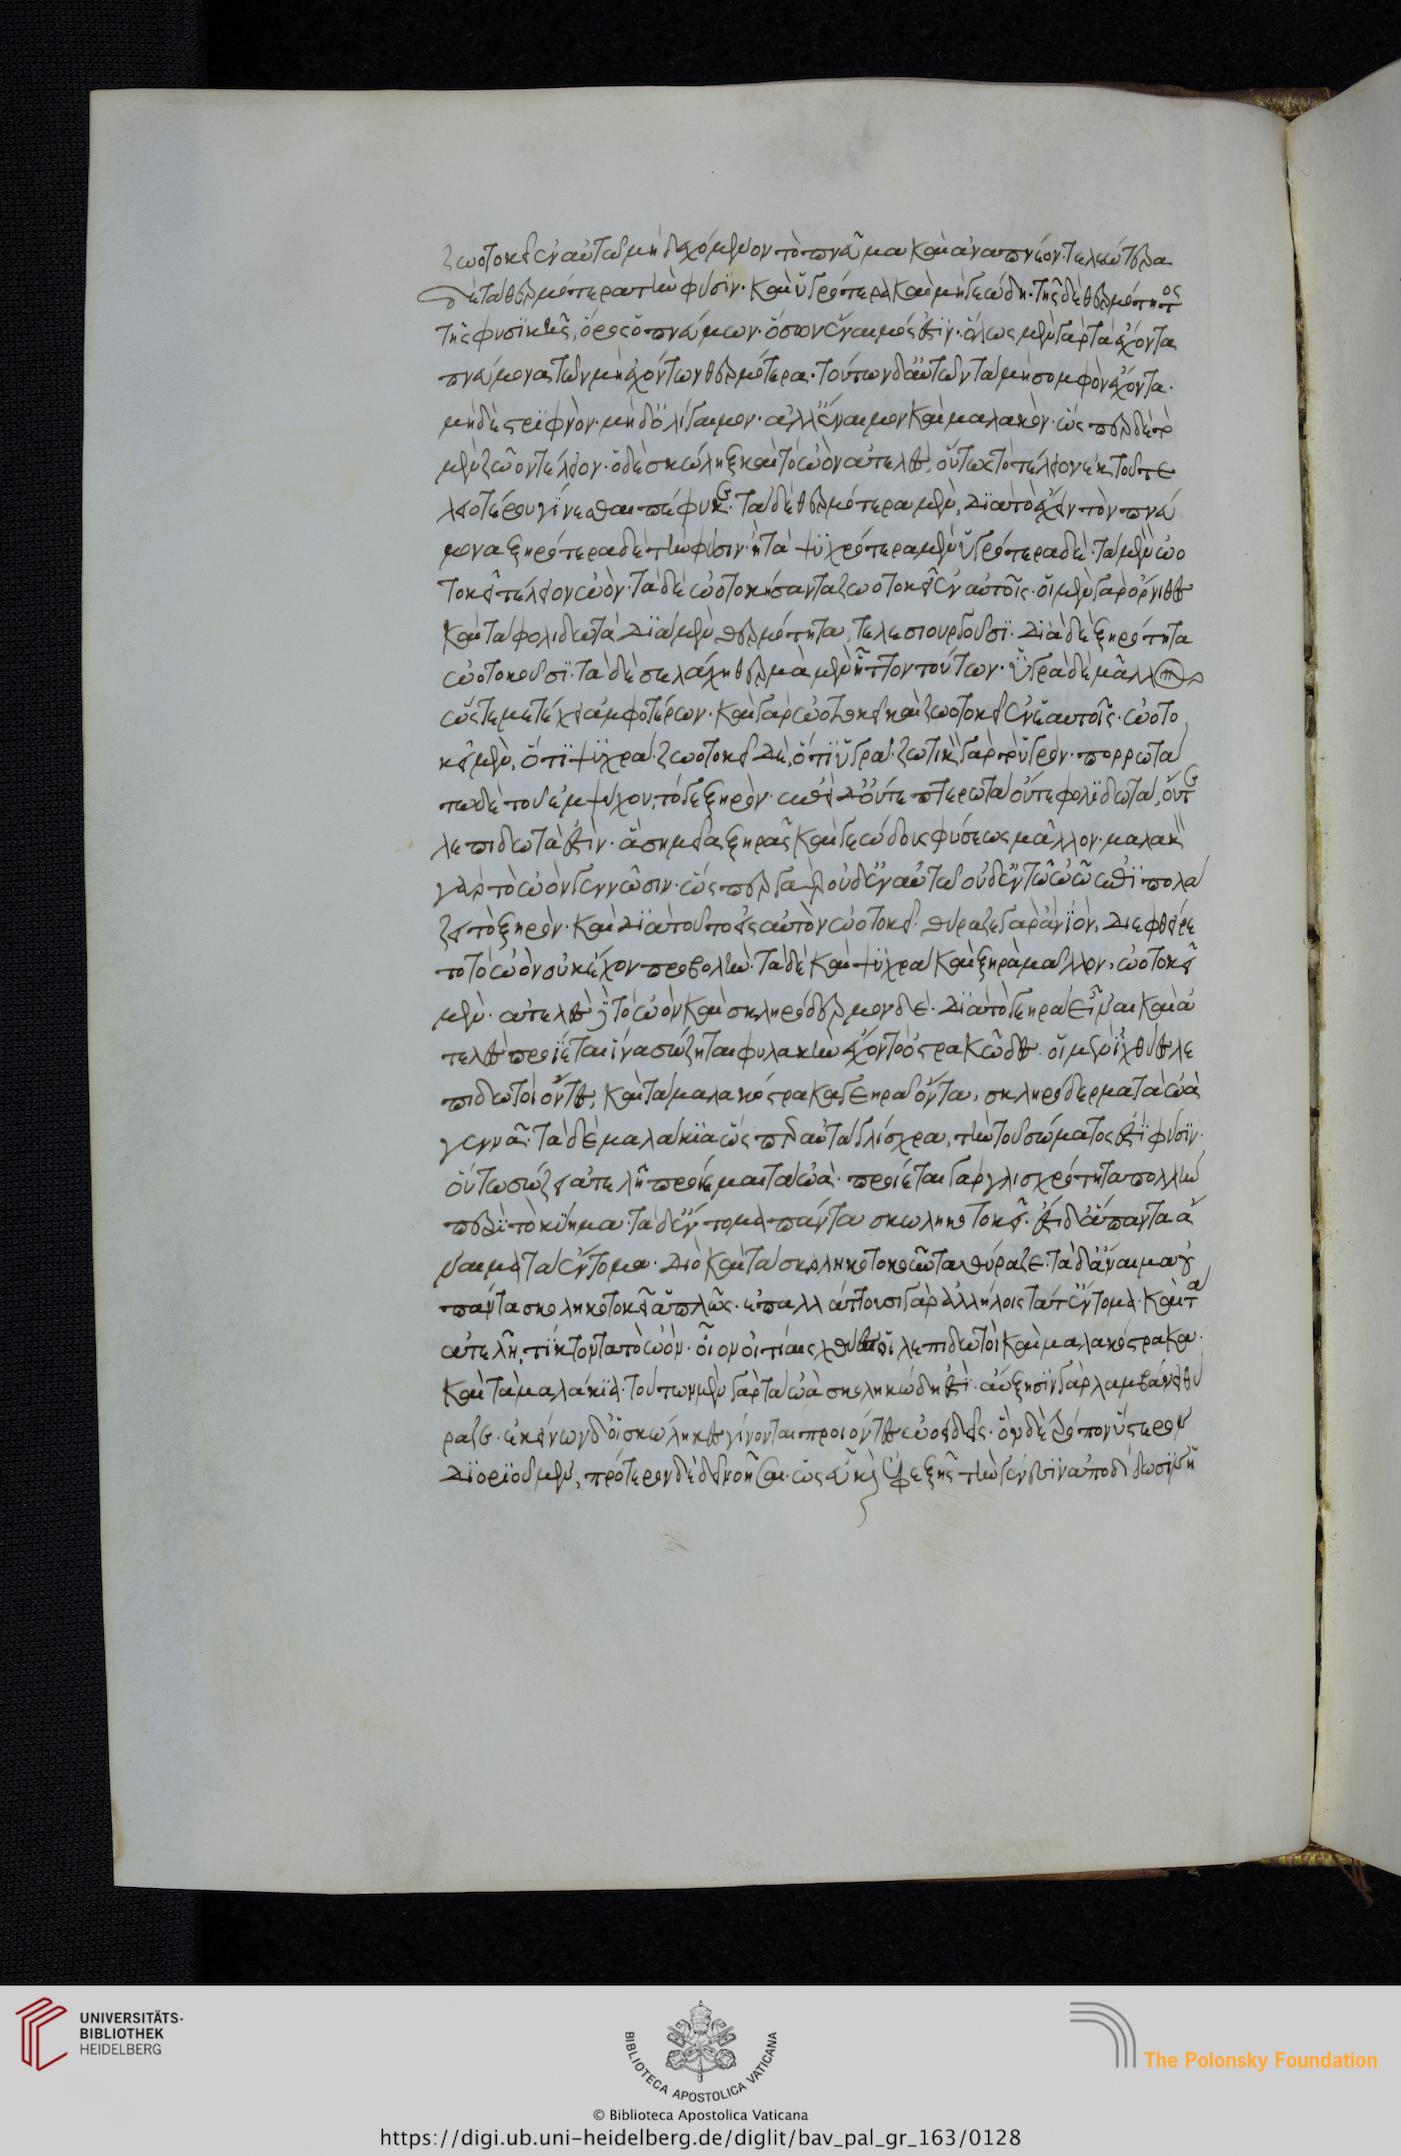 ζωοτοκεῖ ἐν αὐτῶ μὴ δεχόμενον τὸ πνεῦμα καὶ ἀναπνέον· τελεώτερα
δὲ τὰ θερμότερα τὴν φύσϊν· καὶ ὑγρότερα καὶ μὴ γεώδη· τῆς δὲ θερμότητος
τῆς φυσϊκῆς, ὅρος ὁ πνεύμων· ὅσων ἔναιμός ἐστϊν· ὅλως μὲν γὰρ τὰ ἔχοντα
πνεύμονα τῶν μὴ ἐχόντων θερμότερα· τούτων δ' αὐτῶν τὰ μὴ σομφὸν ἔχοντα·
μηδὲ στρϊφνὸν· μηδ' ὀλίγαιμον· ἀλλ' ἔναιμον καὶ μαλακόν· ὥσπερ δὲ τὸ
μὲν ζῶον τέλειον· ὁ δὲ σκώληξ καὶ τὸ ὠὸν ἀτελὲς, οὕτως τὸ τέλειον ἐκ τοῦ τε
λειοτέρου γίνεσθαι πέφυκε· τὰ δὲ θερμότερα μὲν, διὰ τὸ ἔχειν τὸν πνεύ
μονα ξηρότερα δὲ τὴν φύσιν· ἢ τὰ ψϋχρότερα μὲν ὑγρότερα δὲ· τὰ μὲν ὠο
τοκεῖ τέλειον ὠὸν· τὰ δὲ ὠοτοκήσαντα ζωοτοκεῖ ἐν αὑτοῖς· οἱ μὲν γὰρ ὄρνιθες
καὶ τὰ φολιδωτὰ διὰ μὲν θερμότητα, τελεσιουργοῦσϊ· διὰ δὲ ξηρότητα
ὠοτοκοῦσϊ· τὰ δὲ σελάχη θερμὰ μὲν ἧττον τούτων· ὑγρὰ δὲ μᾶλλον
ὥστε μετέχει ἀμφοτέρων· καὶ γὰρ ὠοτοκεῖ καὶ ζωοτοκεῖ ἐν ἑαυτοῖς· ὠοτο
κεῖ μὲν, ὅτϊ ψϋχρὰ· ζωοτοκεῖ δὲ, ὅτϊ ὑγρὰ· ζωτικὸν γὰρ τὸ ὑγρόν· πορρωτά
τω δὲ τοῦ ἐμψύχου, τὸ δὲ ξηρὸν· ἐπεὶ δ' οὔτε πτερωτὰ οὔτε φολϊδωτὰ, οὔτε
λεπιδωτὰ ἐστϊν· ἃ σημεῖα ξηρᾶς καὶ γεώδους φύσεως μᾶλλον· μαλακὸν
γὰρ τὸ ὠὸν γεννῶσιν· ὥσπερ γὰρ οὐδ' ἐν αὐτῶ οὐδ' ἐν τῶ ὠῶ ἐπϊπολά
ζει τὸ ξηρὸν· καὶ διὰ τοῦτο εἰς αὐτὸν ὠοτοκεῖ· θύραζε γὰρ ἀνϊὸν, διεφθείρε
το τὸ ὠὸν οὐκ ἔχον προβολὴν· τὰ δὲ καὶ ψϋχρὰ καὶ ξηρὰ μᾶλλον, ὠοτοκεῖ
μὲν· ἀτελὲς δὲ τὸ ὠὸν καὶ σκληρόδερμον δέ· διὰ τὸ γεηρὰ εἶναι καὶ ἀ
τελὲς προΐεται ἵνα σώζηται φυλακὴν ἔχον τὸ ὀστρακῶδες· οἱ μὲν ἰχθύες λε
πιδωτοὶ ὄντες, καὶ τὰ μαλακόστρακα γεηρὰ ὄντα, σκληρόδερμα τὰ ὠὰ
γεννᾶ· τὰ δὲ μαλάκϊα ὥσπερ αὐτὰ γλίσχρα, τὴν τοῦ σώματός ἐστϊ φύσϊν·
οὕτω σώζει ἀτελῆ προϊέμενα τὰ ὠὰ· προϊεται γὰρ γλισχρότητα πολλὴν
περὶ τὸ κύημα· τὰ δ' ἔντομα πάντα σκωληκοτοκεῖ· ἔστι δ' ἅπαντα ἄ
ναιμα τὰ ἔντομα· διὸ καὶ τὰ σκωληκοτοκοῦντα θύραζε· τὰ δ' ἄναιμα οὐ
πάντα σκωληκοτοκεῖ ἁπλῶς· ἐπαλλάττουσι γὰρ ἀλλήλοις τά τ' ἔντομα· καὶ τὰ
ἀτελῆ, τίκτοντα τὸ ὠόν· οἷον οἵ τε ἰχθύες οἱ λεπιδωτοὶ καὶ μαλακόστρακα·
καὶ τὰ μαλάκϊα· τούτων μὲν γὰρ τὰ ὠὰ σκωληκώδη ἐστὶ· αὔξησϊν γὰρ λαμβάνει θύ
ραζε· ἐκείνων δ' οἱ σκώληκες γίνονται προιόντες ὠοειδεῖς· ὃν δὲ τρόπον ὕστερον
διορϊοῦμεν, πρότερον δὲ δεῖ νοῆσαι ὡς εὖ καὶ ἐφεξῆς τὴν γένεσϊν ἀποδίδωσϊν ἡ